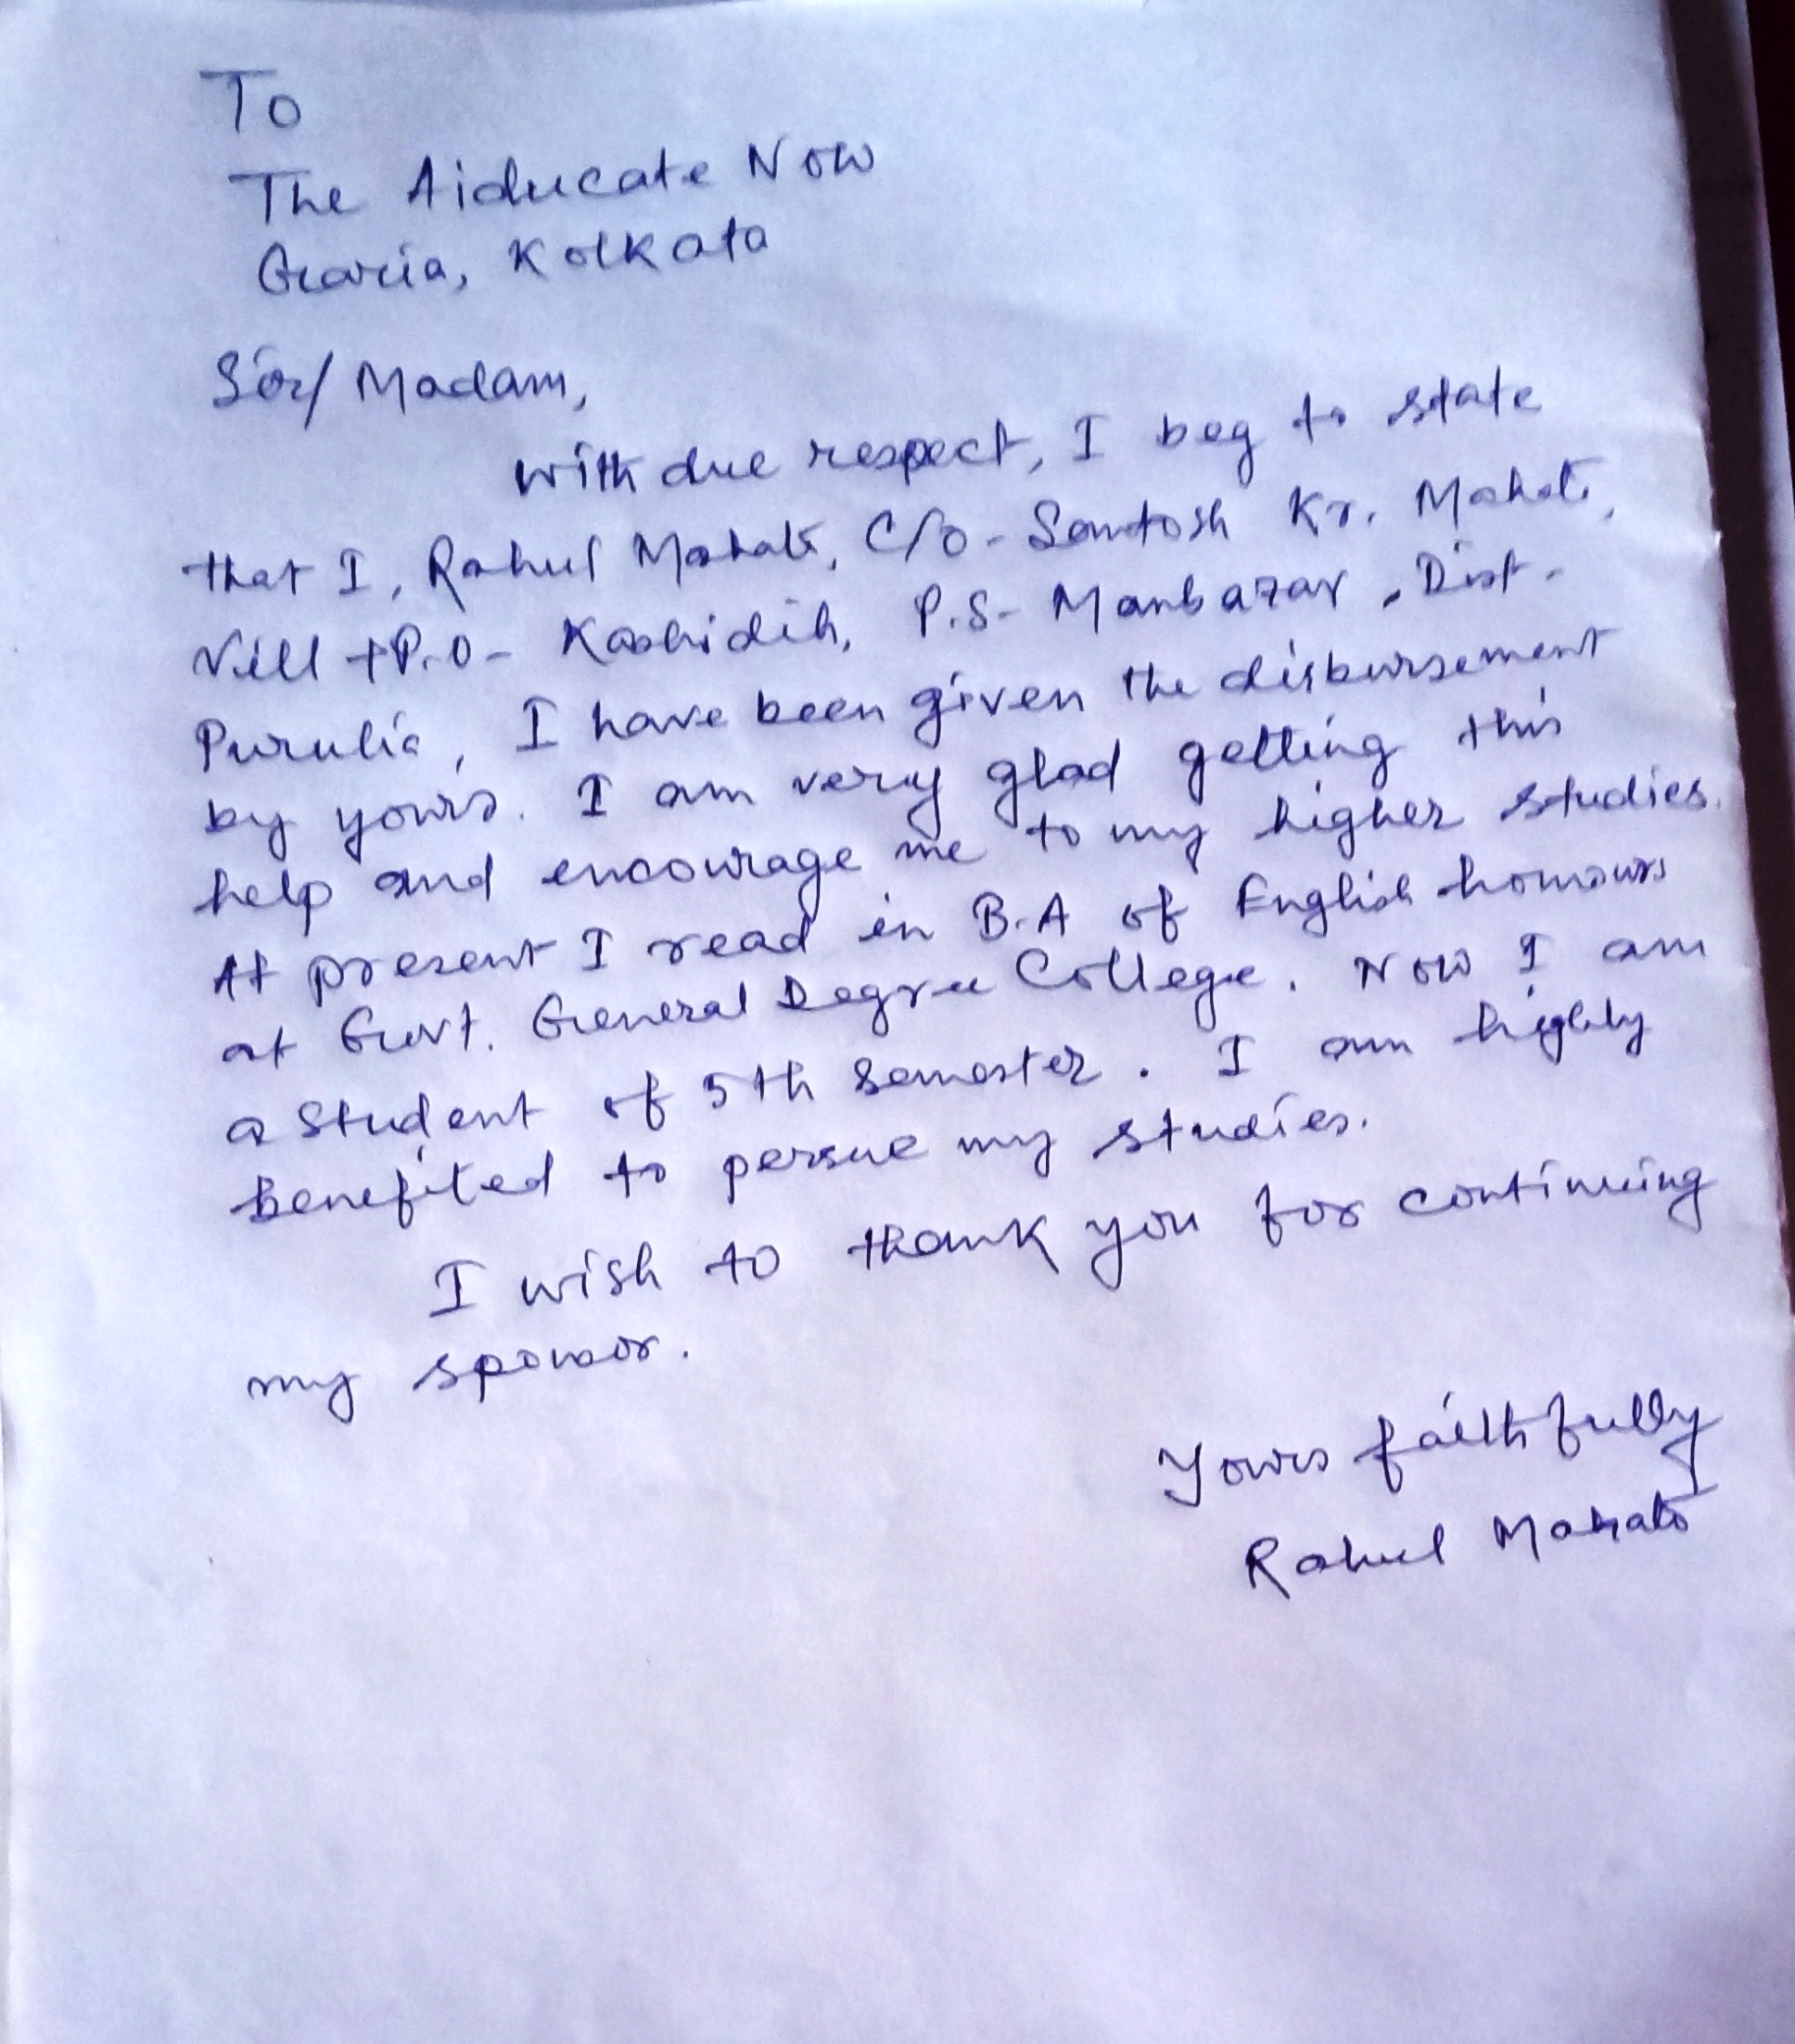 To
The Aiducate Now
Garia, Kolkata
Sir/Madam,
with due respect, I beg to state
that I, Rahul Mahato, C/O - Santosh Kr. Mahato,
Vill + P.O - Kashidih, P.S - Manbazar, Dist -
Purulia, I have been given the disbursement
by yours. I am very glad getting this
help and encourage me to my higher studies.
At present I read in B.A of English honours
at Govt. General Degree College. Now I am
a student of 5th Semester. I am highly
benefited to persue my studies.
I wish to thank you for continuing
my sponsor.
Yours faithfully
Rahul Mahato